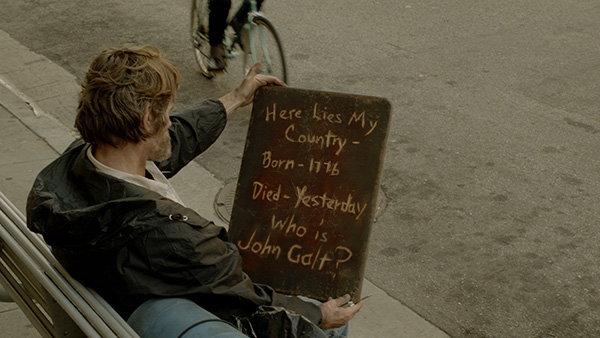 Here Lies My
Country-
Born-1776
Died-Yesterday
Who is
John Galt?